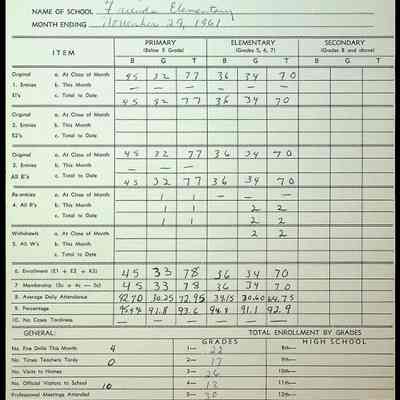 NAME OF SCHOOL Elementary
MONTH ENDING November 29, 1961
ITEM PRIMARY (Below 5 Grade) ELEMENTARY (Grades 5, 6, 7) SECONDARY (Grades 8 and above)
B G T B G T B G T
Original a. At Close of Month 45 32 77 36 34 70
1. Entries b. This Month — — — — — —
E1's c. Total to Date 45 32 77 36 34 70
Original a. At Close of Month
2. Entries b. This Month
E2's c. Total to Date
Original a. At Close of Month 45 32 77 36 34 70
3. Entries b. This Month — — — — — —
All E's c. Total to Date 45 32 77 36 34 70
Re-entries a. At Close of Month 1 1 — 2 2
4. All R's b. This Month 1 1 — 2 2
c. Total to Date 1 1 2 2
Withdrawls a. At Close of Month 2 2
5. All W's b. This Month
c. Total to Date
6. Enrollment (E1 + E2 + E3) 45 33 78 36 34 70
7. Membership (3c + 4c — 5c) 45 33 78 36 34 70
8. Average Daily Attendance 42.70 30.25 72.95 34.15 30.60 64.75
9. Percentage 91.8 93.6 94.8 91.1 92.9
10. No. Cases Tardiness — — — — — —
GENERAL: TOTAL ENROLLMENT BY GRADES
GRADES HIGH SCHOOL
No. Fire Drills This Month 4 1— 22 8th—
No. Times Teachers Tardy 0 2— 17 9th—
No. Visits to Homes 3— 26 10th—
No. Official Visitors to School 10 4— 13 11th—
Professional Meetings Attended 5— 30 12th—